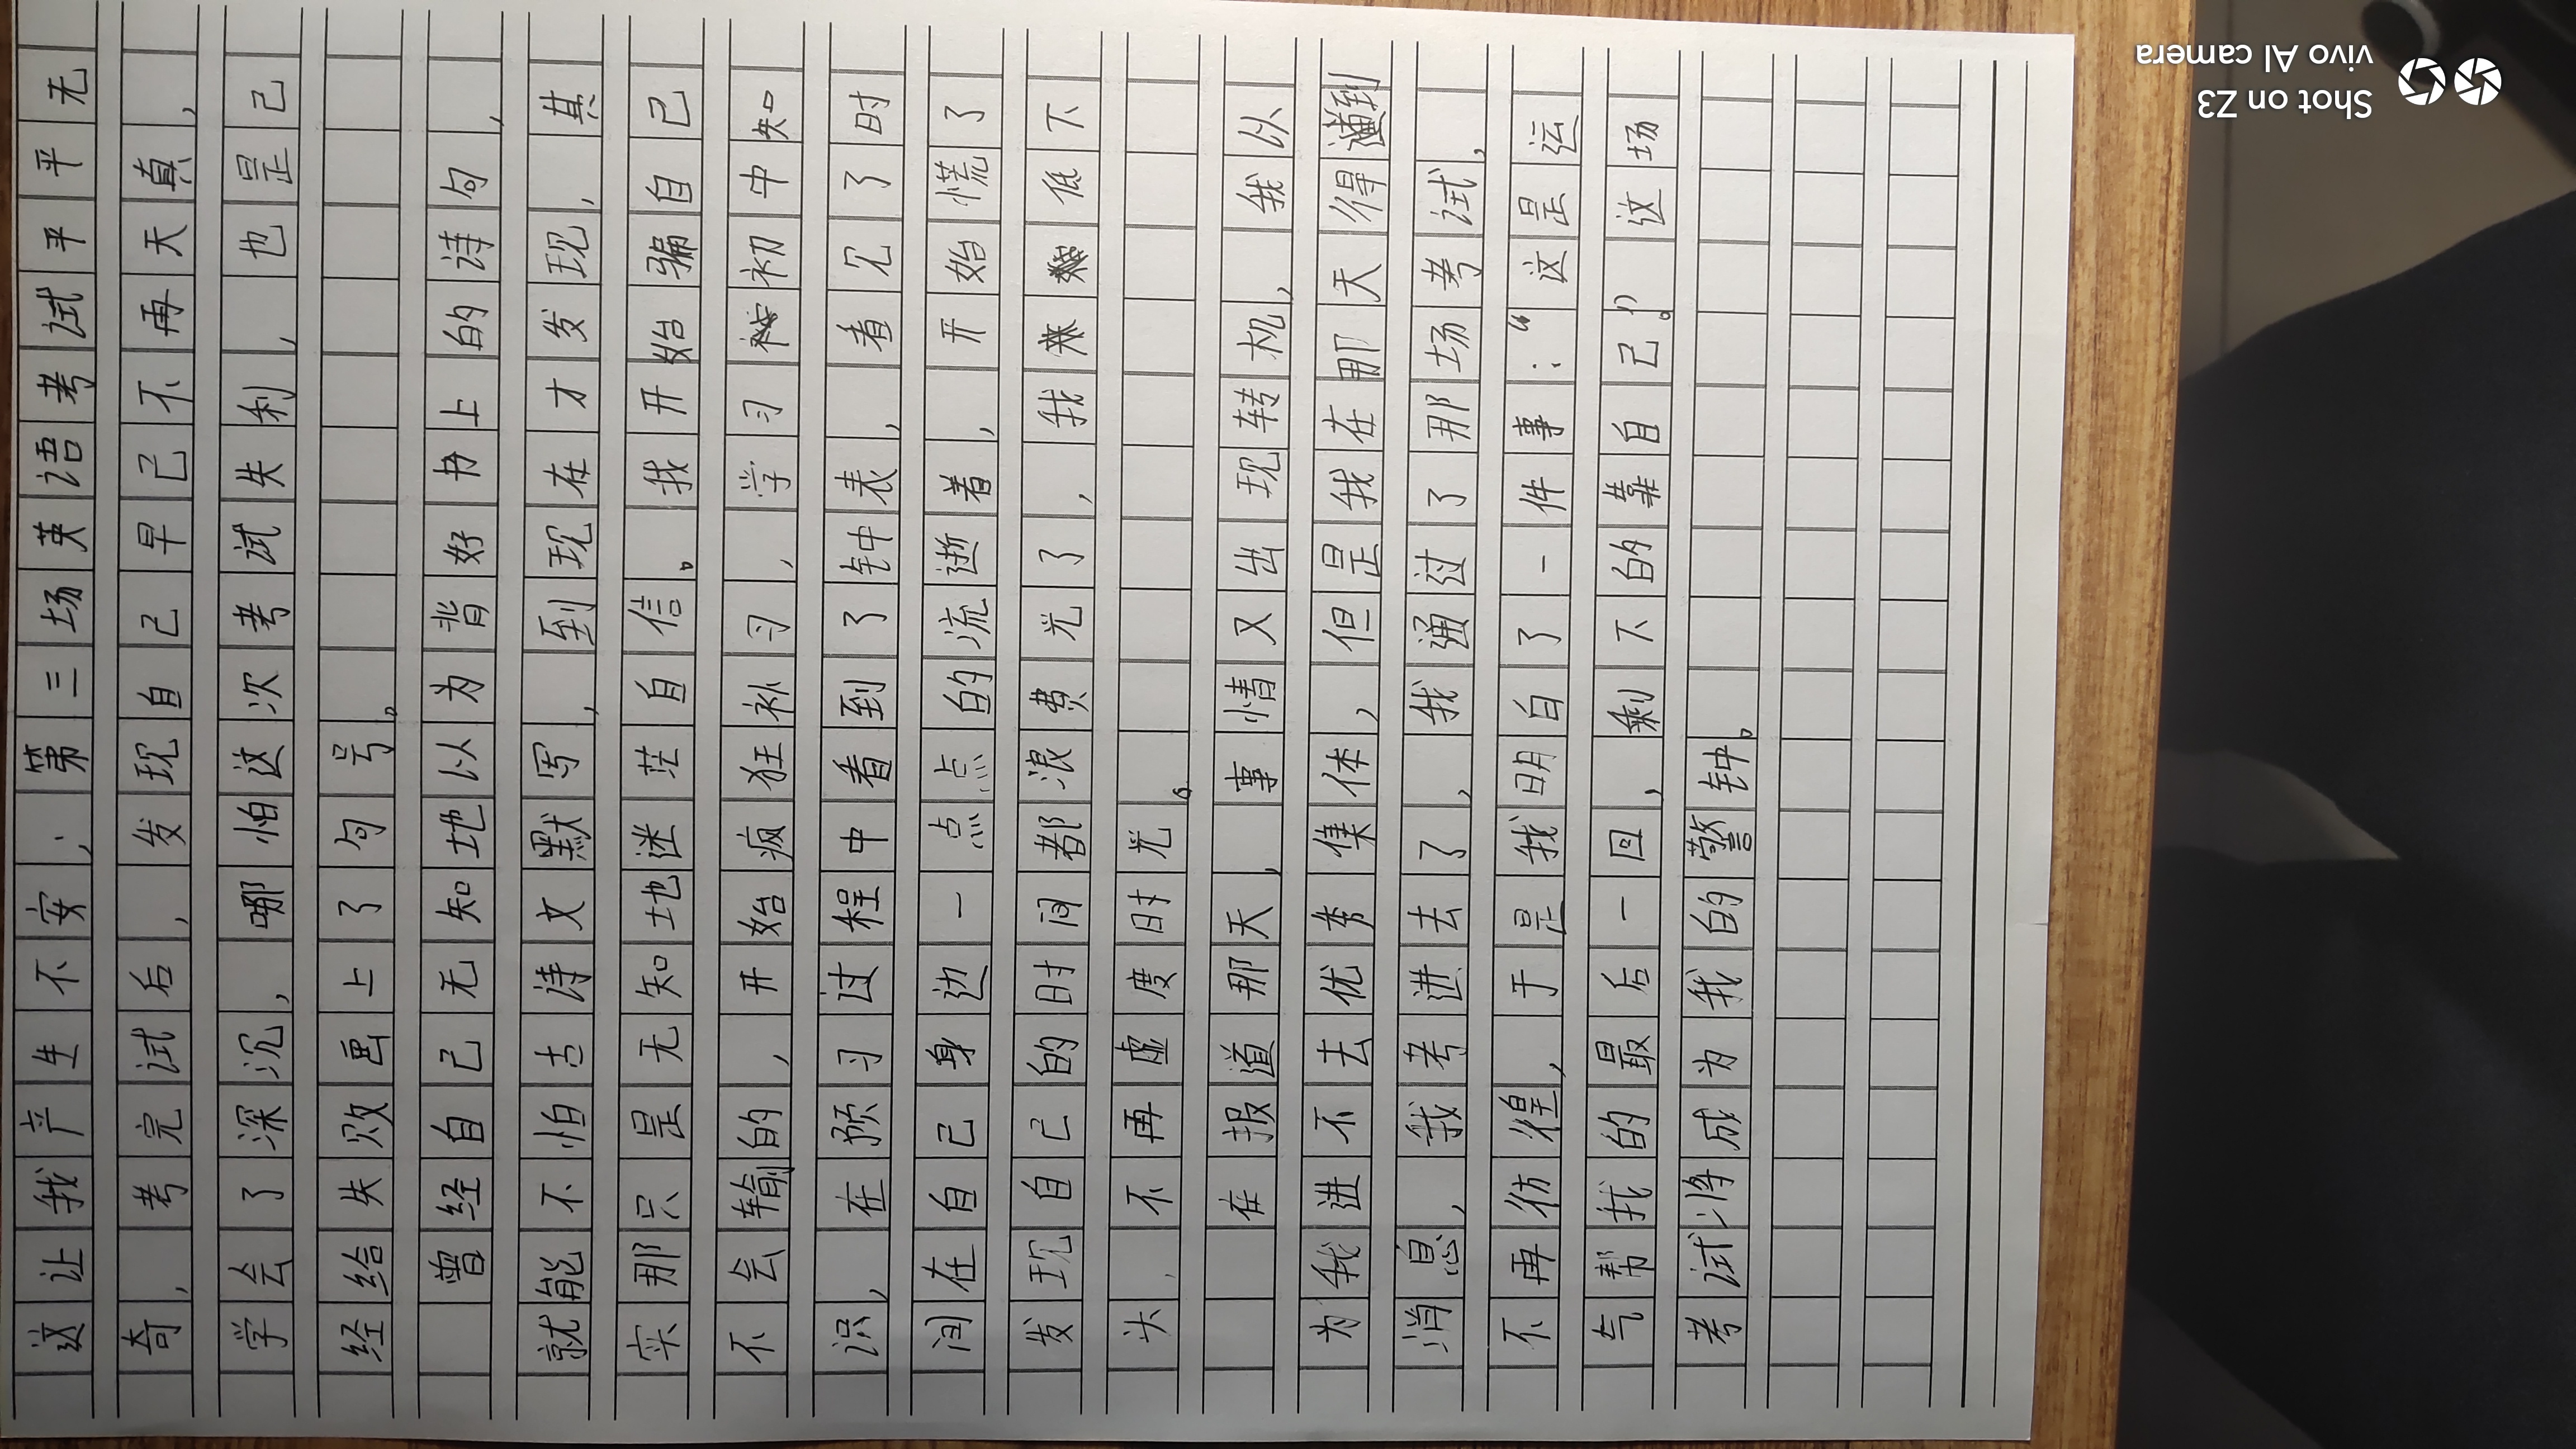 这让我产生不安，第三场英语考试平平无
奇，考完试后，发现自己早已不再天真，
学会了深沉，哪怕这次考试失利，也是己
经给失败画上了句号。
曾经自己无知地以为背好书上的诗句，
就能不怕古诗文默写，到现在才发现，其
实那只是无知地迷茫自信。我开始骗自己
不会输的，开始疯狂补习，学习初中知
识，在预习过程中看到了钟表，看见了时
间在自己身边一点点的流逝着，开始慌了
发现自己的时间都浪费光了，我低下
头，不再虚度时光。
在报道那天，事情又出现转机，我以
为我进不去优秀集体，但是我在那天得到
消息，我考进去了，我通过了那场考试，
不再彷徨，于是我明白了一件事：“这是运
气帮我的最后一回，剩下的靠自己。”这场
考试将成为我的警钟。
Shot on Z3
vivo AI camera